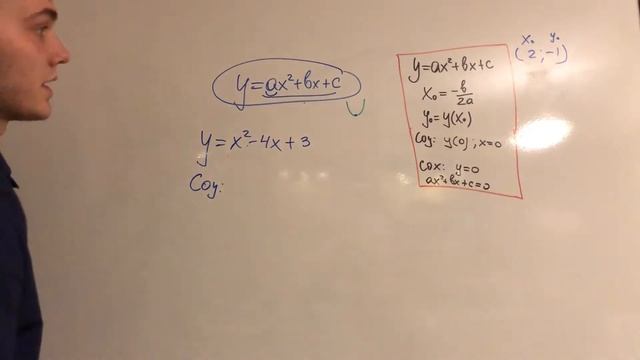 y=ax²+bx+c
y=x²-4x+3
Coy:
y=ax²+bx+c
x₀=-b/2a
y₀=y(x₀)
Coy: y(0); x=0
Cox: y=0
ax²+bx+c=0
x₀ y₀
(2;-1)